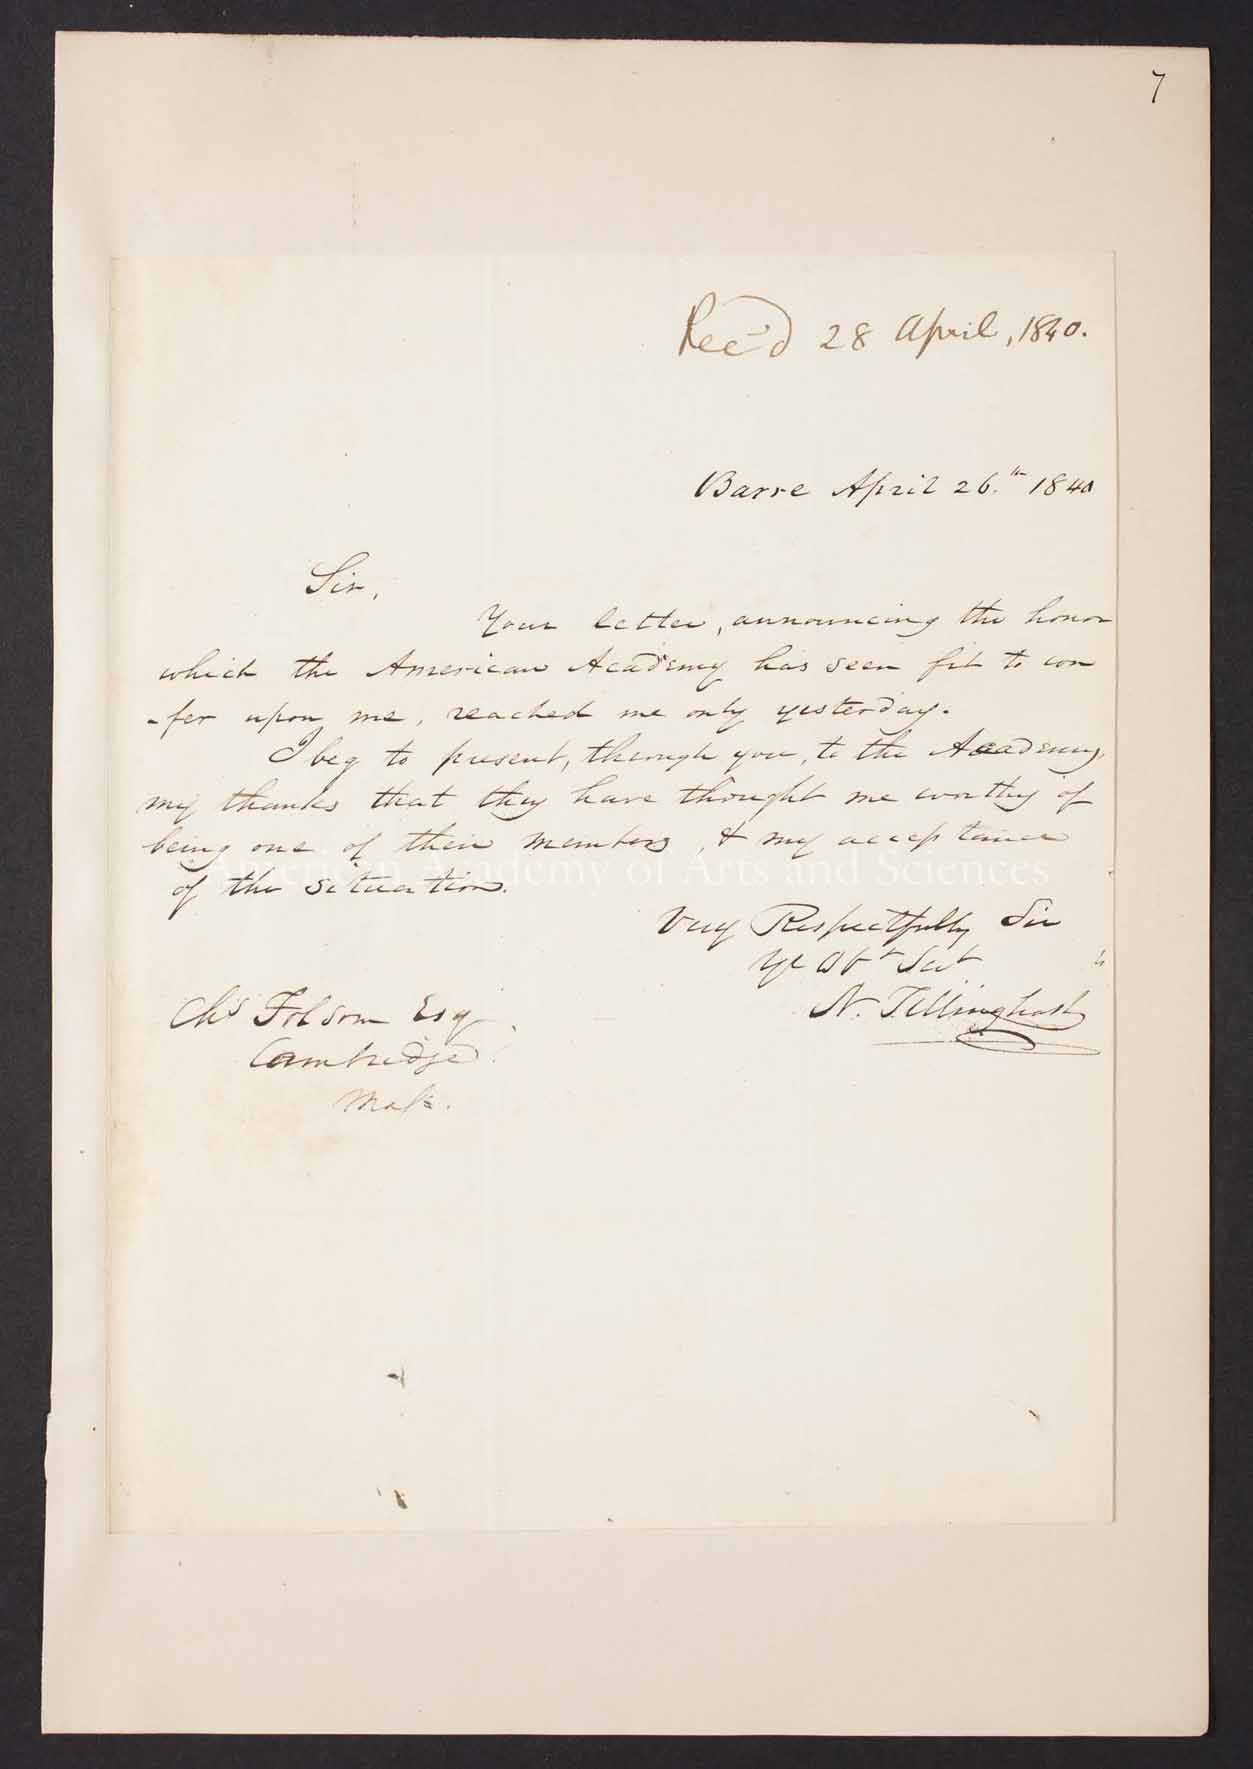 7
Rec'd 28 April, 1840.
Barre April 26.th 1840
Sir,
Your letter, announcing the honor
which the American Academy has seen fit to con
-fer upon me, reached me only yesterday.
I beg to present, through you, to the Academy,
my thanks that they have thought me worthy of
being one of their members, & my acceptance
of the situation.
American Academy of Arts and Sciences
Very Respectfully Sir
Yr Obt Sert
N. Tillinghast
Chs Folsom Esq
Cambridge
Mass.